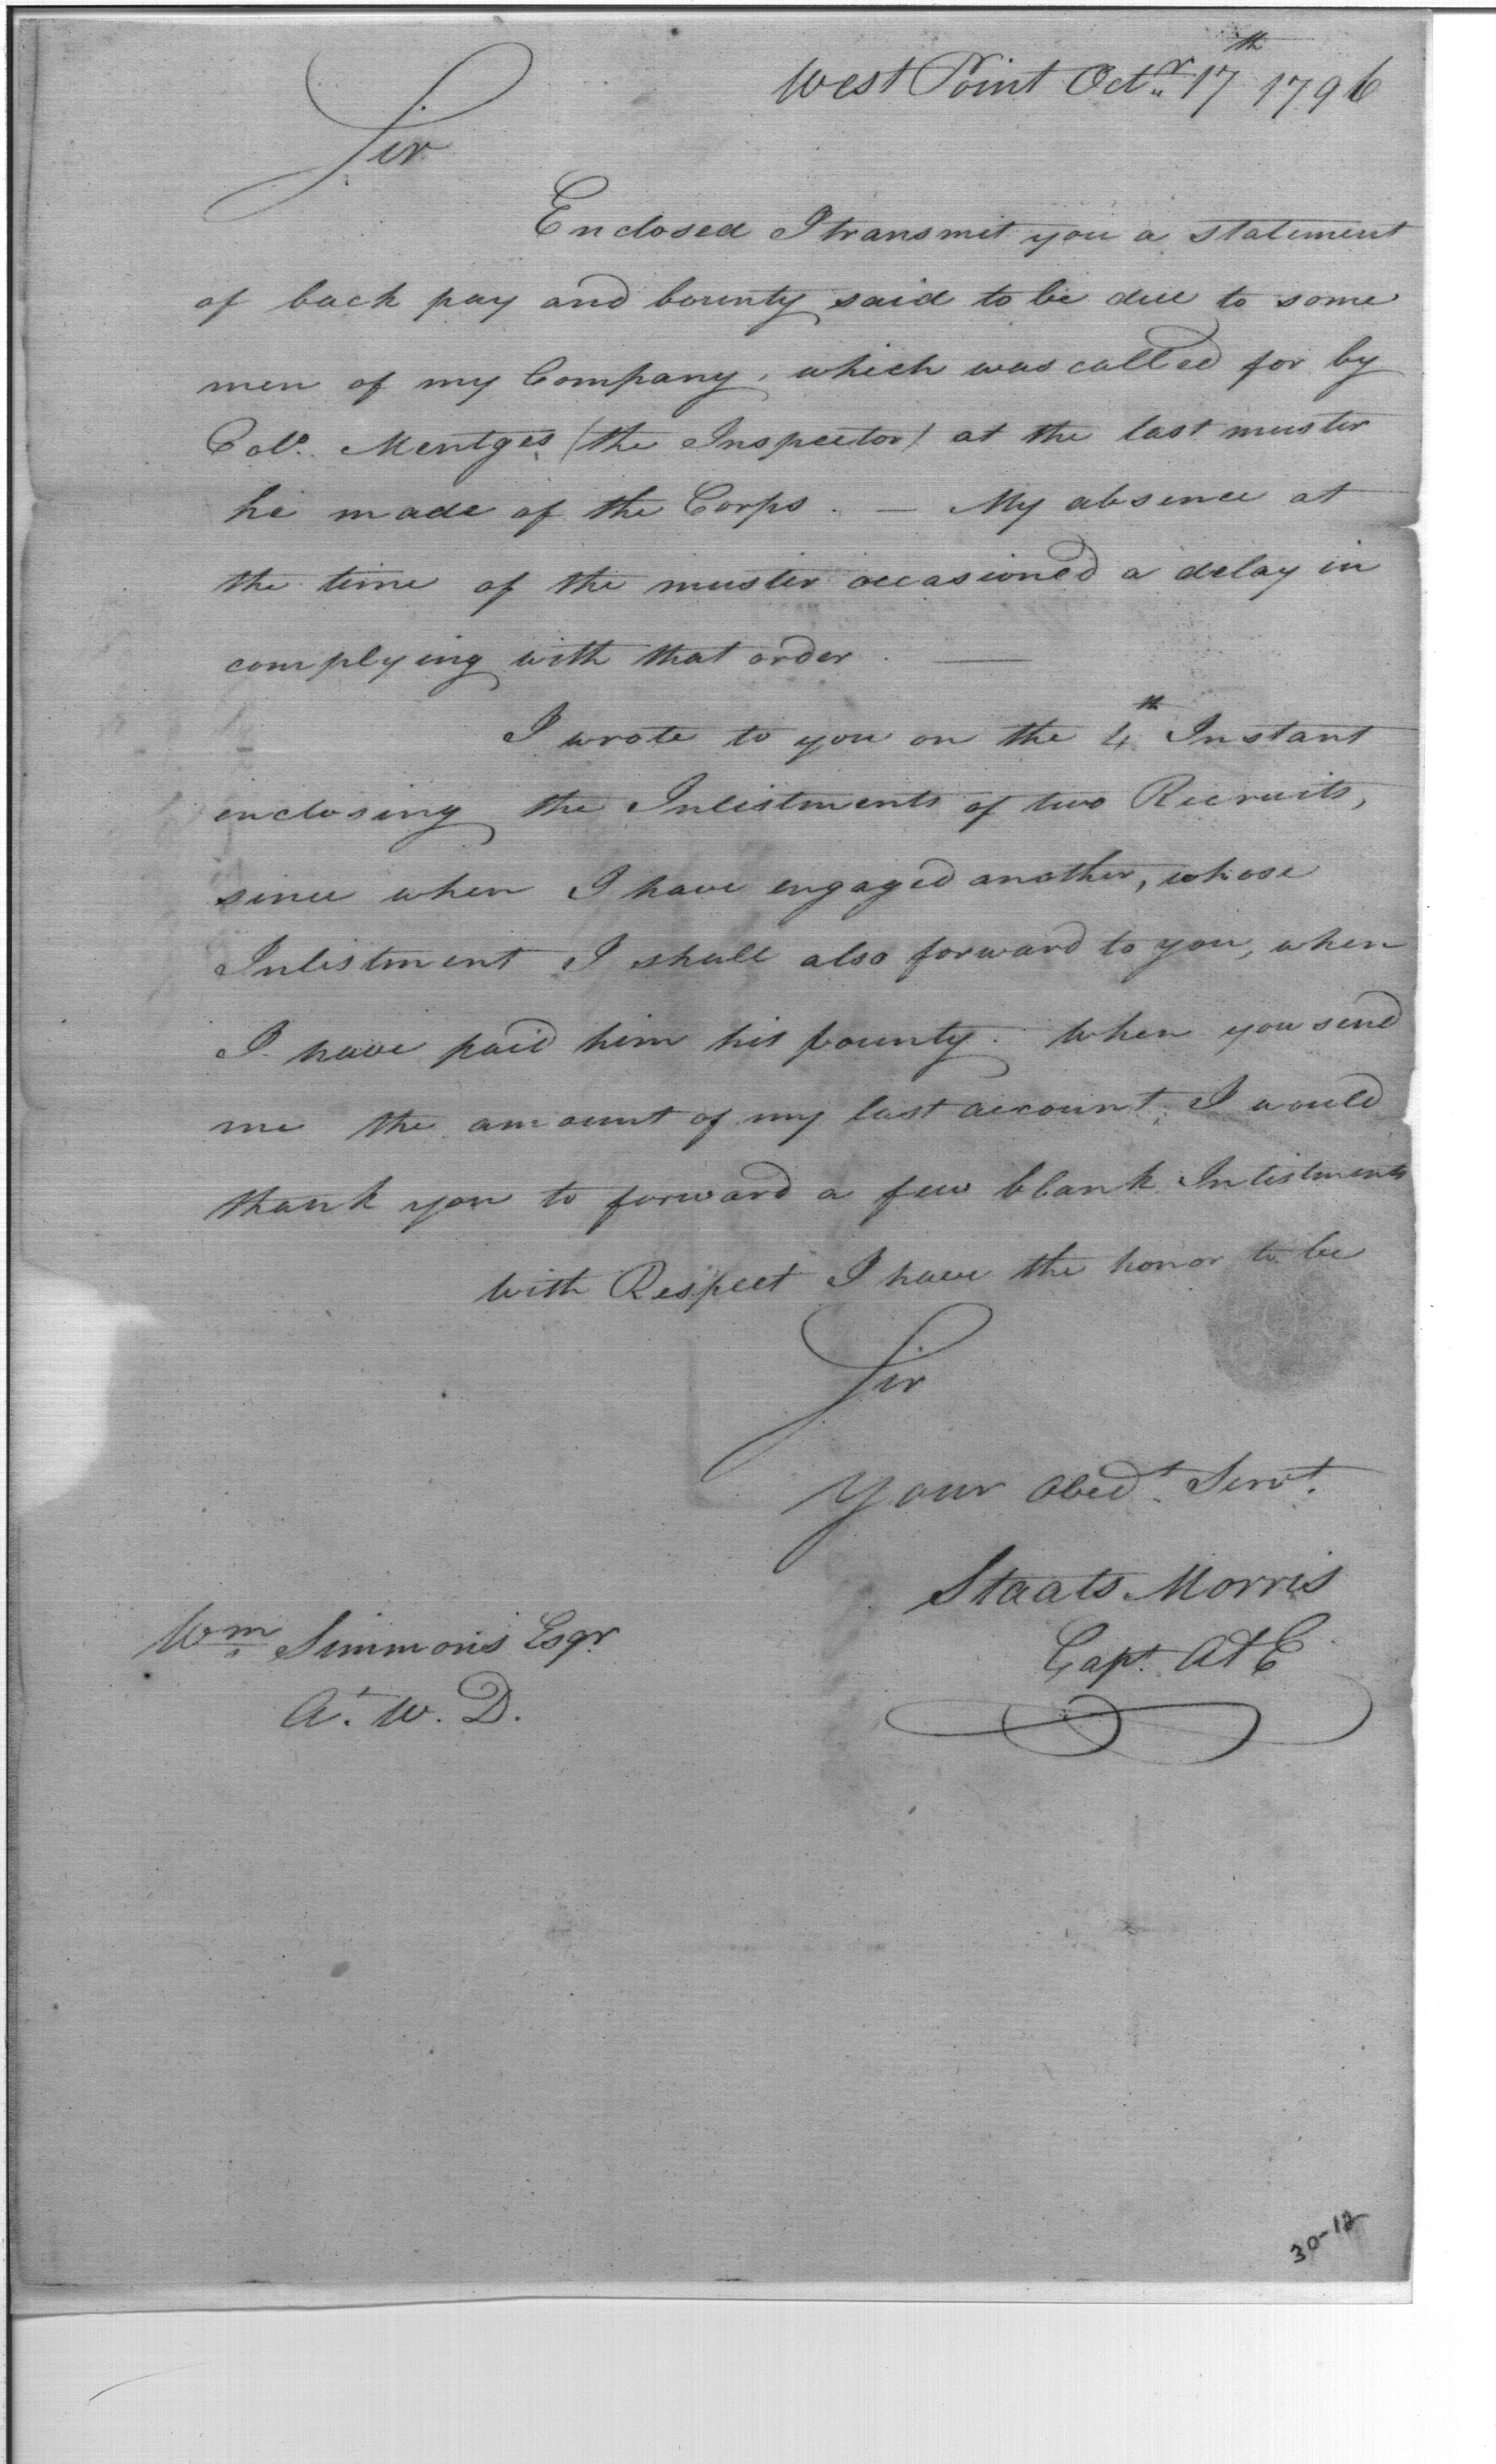 West Point Octr. 17th 1796
Sir
Enclosed I transmit you a statement
of back pay and bounty said to be due to some
men of my Company, which was called for by
Colo. Mentges (the Inspector) at the last muster
he made of the Corps. — My absence at
the time of the muster occasioned a delay in
complying with that order. —
I wrote to you on the 4th Instant
enclosing the Inlistments of two Recruits,
since when I have engaged another, whose
Inlistment I shall also forward to you, when
I have paid him his bounty. When you send
me the amount of my last account, I would
thank you to forward a few blank Inlistments
With Respect I have the honor to be
Sir
Your Obedt. Servt.
Staats Morris
Capt. A&E
Wm Simmons Esqr.
At. W. D.
30-12